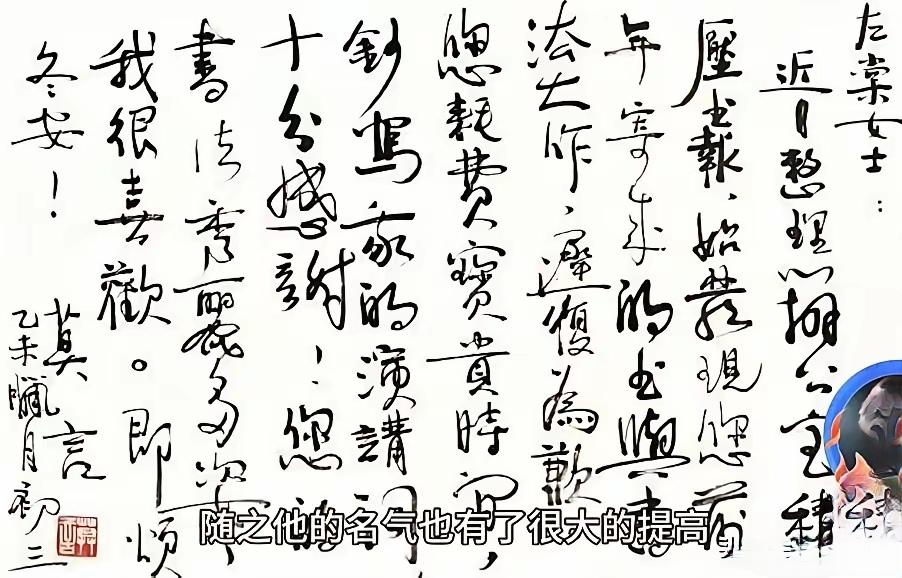 左棠女士：
近日整理辦公室積
壓书報，始發現您前
年寄来的书與書
法大作，遲復為歉
您耗費寶貴時间，
鈔寫我的演講词
十分感謝！您的
書法秀麗多姿，
我很喜歡。即颂
冬安！
莫言
乙未臘月初三
随之他的名气也有了很大的提高